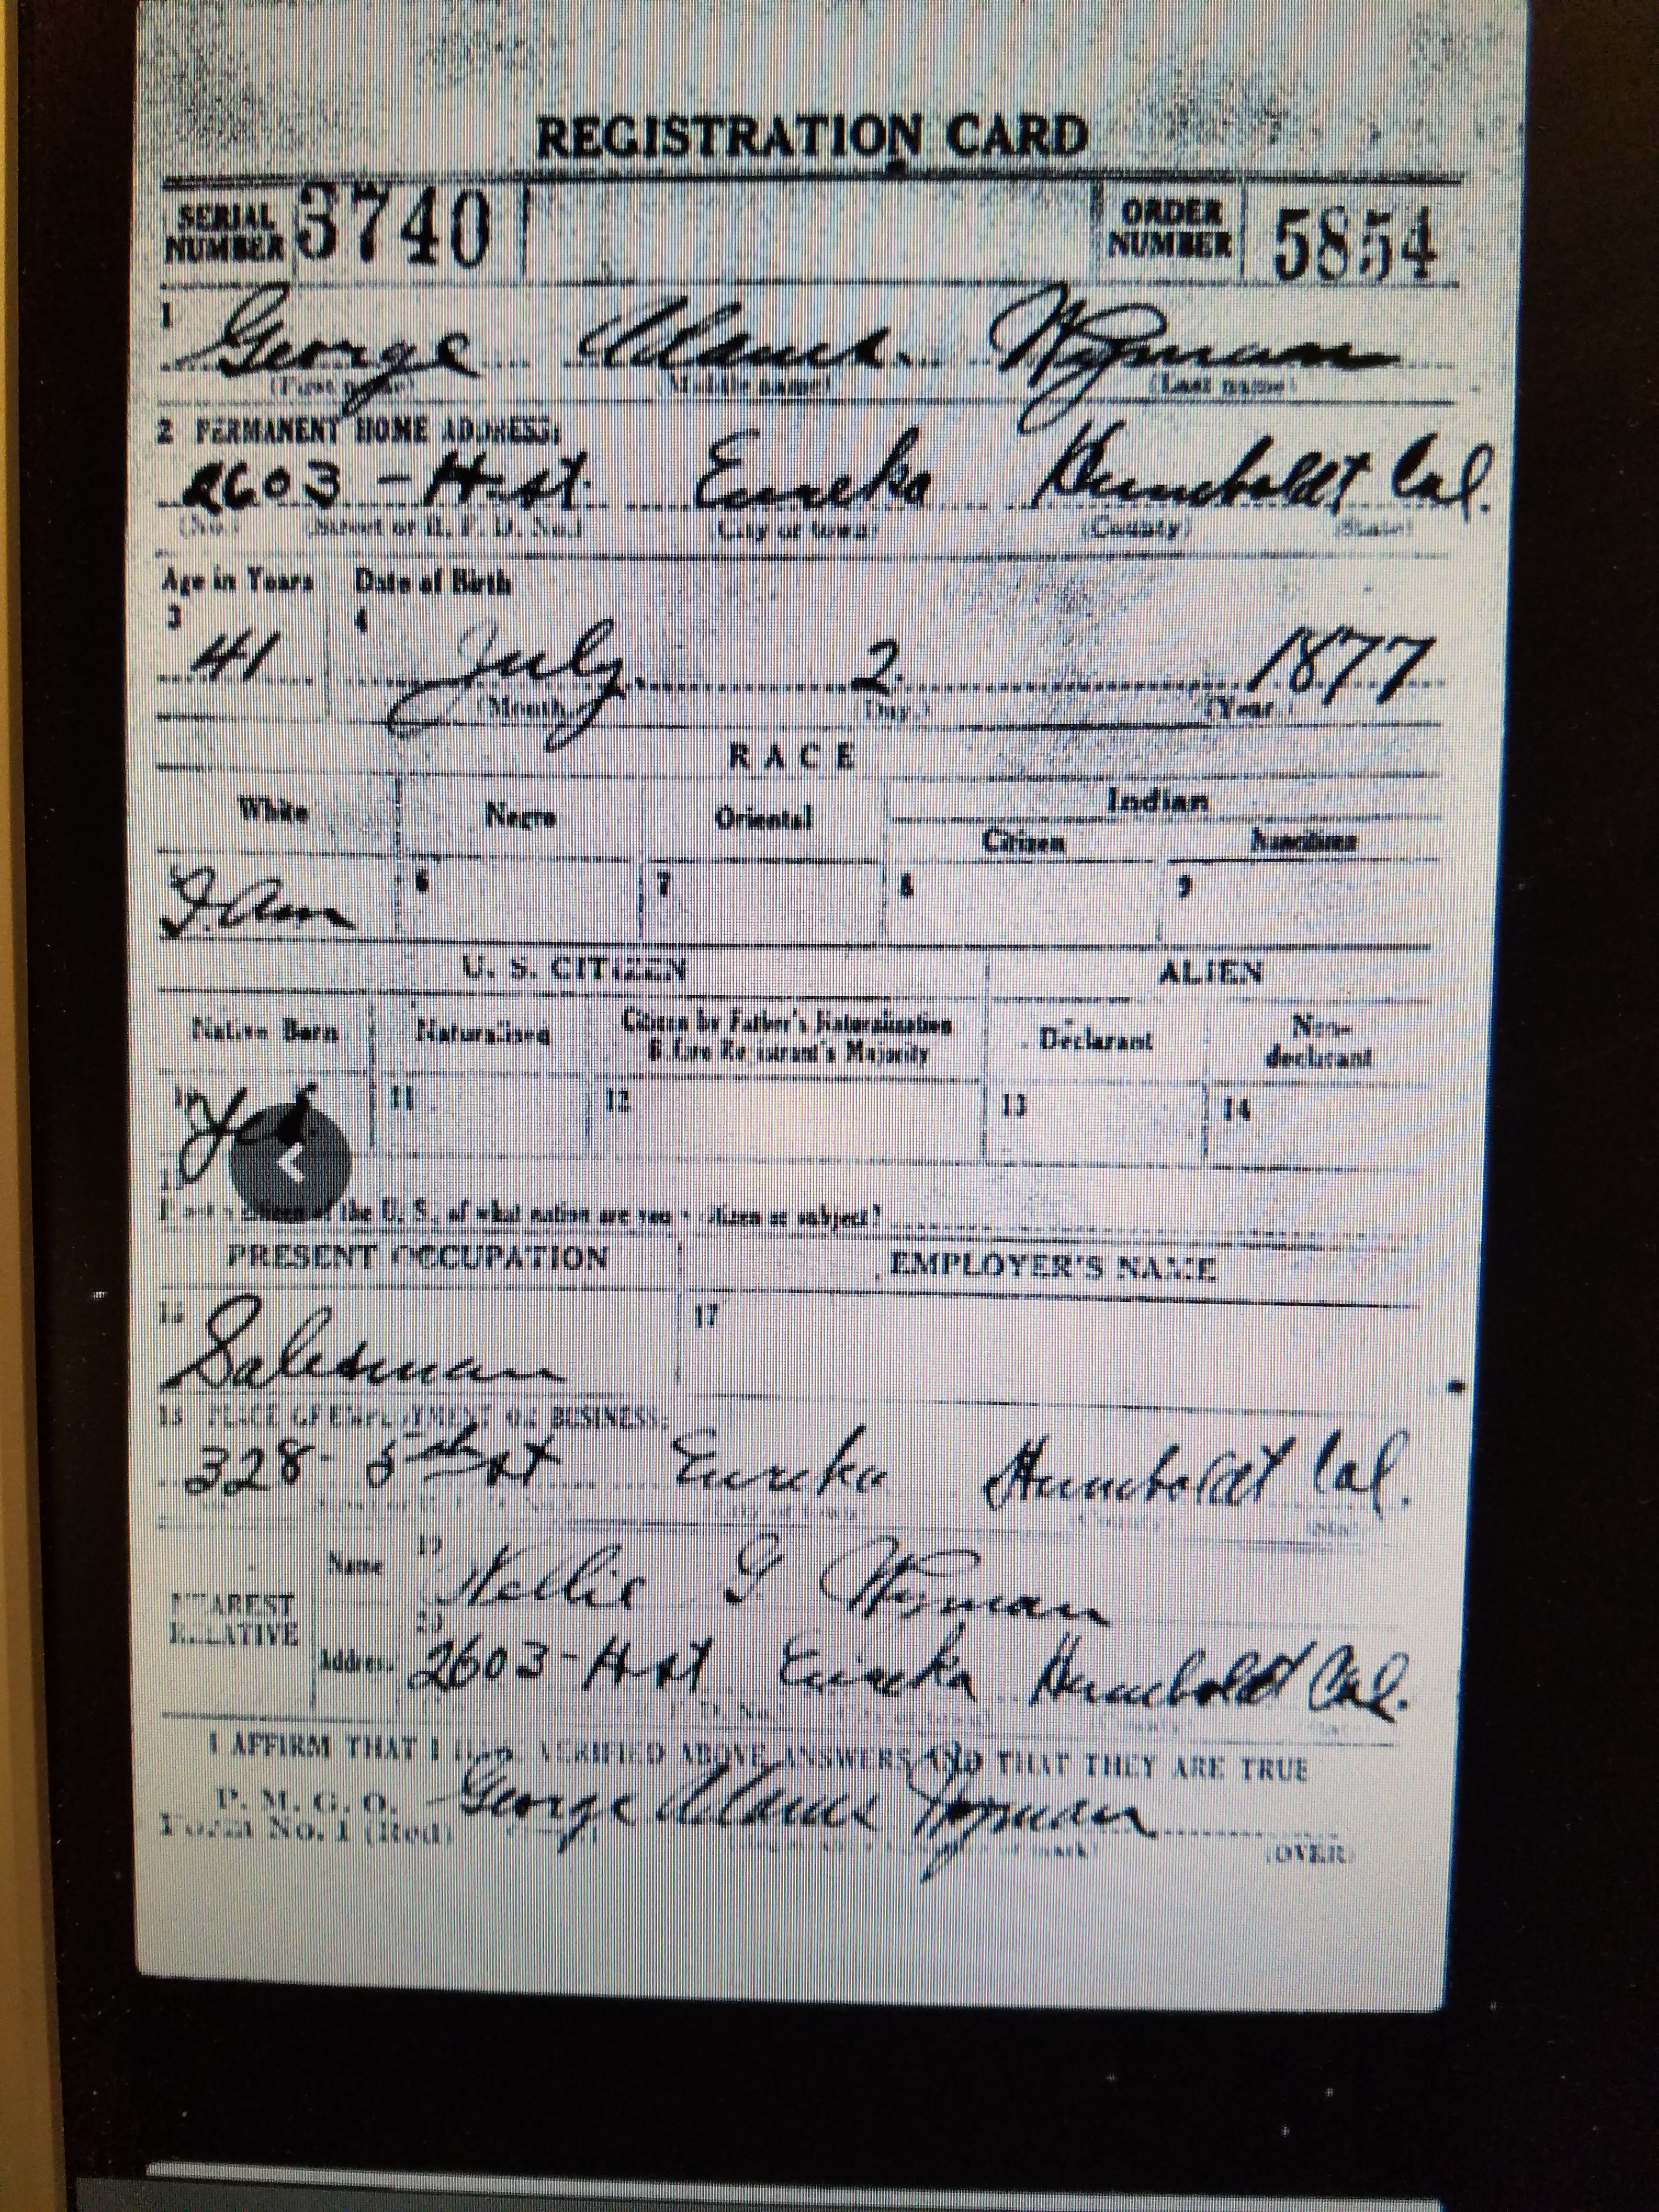 REGISTRATION CARD
SERIAL NUMBER 3740 ORDER NUMBER 5854
1 George Adams Wyman
(First name) (Middle name) (Last name)
2 PERMANENT HOME ADDRESS:
2603 - H-st. Eureka Humboldt Cal.
(No.) (Street or R. F. D. No.) (City or town) (County) (State)
Age in Years Date of Birth
3 4
41 July 2. 1877
(Month.) (Day.) (Year.)
RACE
White Negro Oriental Indian
Citizen Noncitizen
6 7 8 9
U. S. CITIZEN ALIEN
Native Born Naturalized Citizen by Father's Naturalization Before Registrant's Majority Declarant Non-declarant
10 Yes. 11 12 13 14
the U. S., of what nation are you a citizen or subject?
PRESENT OCCUPATION EMPLOYER'S NAME
16 Salesman 17
18 PLACE OF EMPLOYMENT OR BUSINESS:
328 - 5th st Eureka Humboldt Cal.
(City or town) (County) (State)
NEAREST RELATIVE Name 19 Nellie G Wyman
Address 20 2603 - H-st Eureka Humboldt Cal.
I AFFIRM THAT I HAVE VERIFIED ABOVE ANSWERS AND THAT THEY ARE TRUE
P. M. G. O.
Form No. 1 (Red) George Adams Wyman
(OVER)